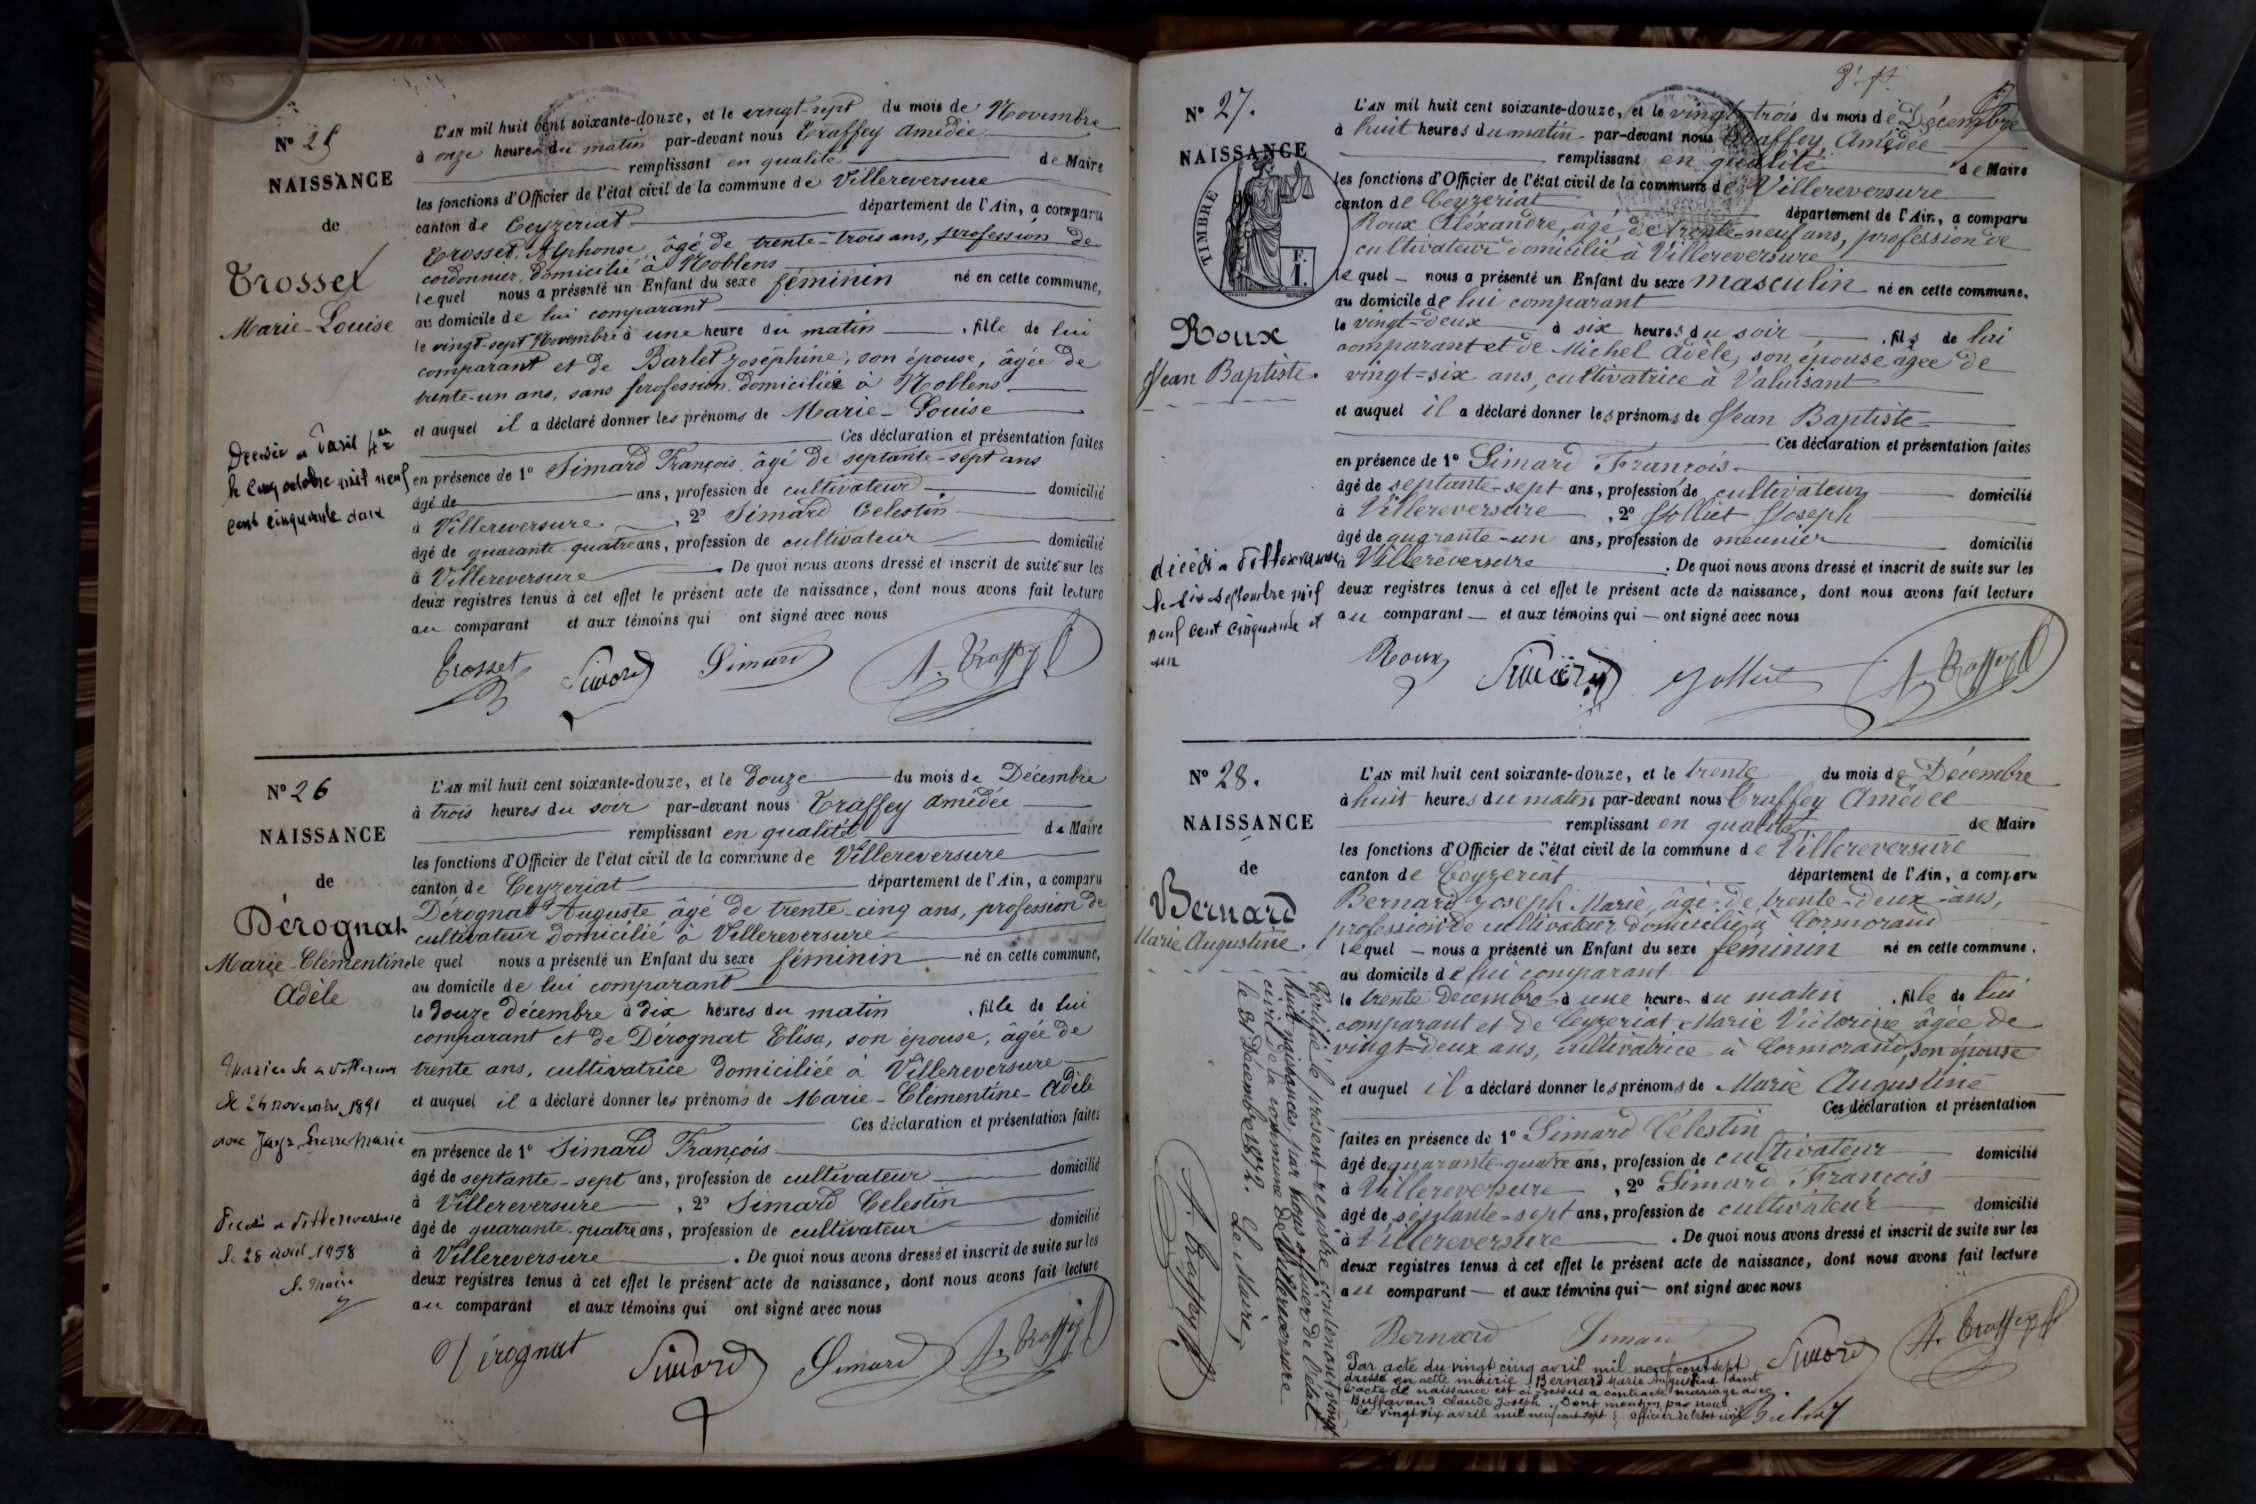 N° 25
NAISSANCE
de
Trosset
Marie-Louise
L'AN mil huit cent soixante-douze, et le vingt-sept du mois de Novembre
à onze heures du matin par-devant nous Traffey Amédée
remplissant en qualité de Maire
les fonctions d'Officier de l'état civil de la commune de Villereversure
canton de Ceyzeriat département de l'Ain, a comparu
Trosset Alphonse, âgé de trente-trois ans, profession de
cordonnier, domicilié à Noblens
lequel nous a présenté un Enfant du sexe féminin né en cette commune,
au domicile de lui comparant
le vingt-sept Novembre à une heure du matin, fille de lui
comparant et de Barlet Joséphine, son épouse, âgée de
trente-un ans, sans profession domiciliée à Noblens
et auquel il a déclaré donner les prénoms de Marie-Louise
Ces déclaration et présentation faites
en présence de 1° Simard François, âgé de septante-sept ans
âgé de ans, profession de cultivateur domicilié
à Villereversure, 2° Simard Celestin
âgé de quarante-quatre ans, profession de cultivateur domicilié
à Villereversure. De quoi nous avons dressé et inscrit de suite sur les
deux registres tenus à cet effet le présent acte de naissance, dont nous avons fait lecture
au comparant et aux témoins qui ont signé avec nous
Trosset Simard Simard A. Traffey
Décédée a Paris
le cinq octobre mil neuf
cent cinquante deux
N° 26
NAISSANCE
de
Dérognat
Marie-Clémentine
Adèle
L'AN mil huit cent soixante-douze, et le douze du mois de Décembre
à trois heures du soir par-devant nous Traffey Amédée
remplissant en qualité de Maire
les fonctions d'Officier de l'état civil de la commune de Villereversure
canton de Ceyzeriat département de l'Ain, a comparu
Dérognat Auguste âgé de trente-cinq ans, profession de
cultivateur domicilié à Villereversure
lequel nous a présenté un Enfant du sexe féminin né en cette commune,
au domicile de lui comparant
le douze décembre à dix heures du matin, fille de lui
comparant et de Dérognat Elisa, son épouse, âgée de
trente ans, cultivatrice domiciliée à Villereversure
et auquel il a déclaré donner les prénoms de Marie-Clémentine-Adèle
Ces déclaration et présentation faites
en présence de 1° Simard François
âgé de septante-sept ans, profession de cultivateur domicilié
à Villereversure, 2° Simard Celestin
âgé de quarante-quatre ans, profession de cultivateur domicilié
à Villereversure. De quoi nous avons dressé et inscrit de suite sur les
deux registres tenus à cet effet le présent acte de naissance, dont nous avons fait lecture
au comparant et aux témoins qui ont signé avec nous
Dérognat Simard Simard A. Traffey
novembre 1891
avec Pierre Marie
Villereversure
le 28 août 1958
Le Maire
N° 27.
NAISSANCE
TIMBRE
F.
1.
Roux
Jean Baptiste.
L'AN mil huit cent soixante-douze, et le vingt-trois du mois de Décembre
à huit heures du matin par-devant nous Traffey, Amédée
remplissant en qualité de Maire
les fonctions d'Officier de l'état civil de la commune de Villereversure
canton de Ceyzeriat département de l'Ain, a comparu
Roux Aléxandre, âgé de trente-neuf ans, profession de
cultivateur domicilié à Villereversure
lequel nous a présenté un Enfant du sexe masculin né en cette commune,
au domicile de lui comparant
le vingt-deux à six heures du soir, fils de lui
comparant et de Michel Adèle, son épouse âgée de
vingt-six ans, cultivatrice à Valuisant
et auquel il a déclaré donner les prénoms de Jean Baptiste
Ces déclaration et présentation faites
en présence de 1° Simard François
âgé de septante-sept ans, profession de cultivateur domicilié
à Villereversure, 2° Jolliet Joseph
âgé de quarante-un ans, profession de meunier domicilié
à Villereversure. De quoi nous avons dressé et inscrit de suite sur les
deux registres tenus à cet effet le présent acte de naissance, dont nous avons fait lecture
au comparant et aux témoins qui ont signé avec nous
Roux Simard Jolliet A. Traffey
décédé a Villereversure
le dix septembre mil
neuf cent cinquante et
un
N° 28.
NAISSANCE
de
Bernard
Marie Augustine.
L'AN mil huit cent soixante-douze, et le trente du mois de Décembre
à huit heures du matin par-devant nous Traffey Amédée
remplissant en qualité de Maire
les fonctions d'Officier de l'état civil de la commune de Villereversure
canton de Ceyzériat département de l'Ain, a comparu
Bernard Joseph Marie, âgé de trente-deux ans,
profession de cultivateur domicilié à Cormorand
lequel nous a présenté un Enfant du sexe féminin né en cette commune,
au domicile de lui comparant
le trente Décembre à une heure du matin, fille de lui
comparant et de Ceyzeriat Marie Victorine âgée de
vingt-deux ans, cultivatrice à Cormorand, son épouse
et auquel il a déclaré donner les prénoms de Marie Augustine
Ces déclaration et présentation
faites en présence de 1° Simard Célestin
âgé de quarante-quatre ans, profession de cultivateur domicilié
à Villereversure, 2° Simard François
âgé de septante-sept ans, profession de cultivateur domicilié
à Villereversure. De quoi nous avons dressé et inscrit de suite sur les
deux registres tenus à cet effet le présent acte de naissance, dont nous avons fait lecture
au comparant et aux témoins qui ont signé avec nous
Bernard Simard Simard A. Traffey
Par acte du vingt cinq avril mil neuf cent sept
dressé en cette mairie, Bernard Marie Augustine dont
l'acte de naissance est ci-dessus a contracté mariage avec
Buffavand Claude Joseph. Dont mention par nous
le vingt six avril mil neuf cent sept officier de l'état civil
Certifié le présent registre contenant vingt
huit naissances, par nous officier de l'état
civil de la commune de Villereversure
le 31 Décembre 1872. Le Maire,
A. Traffey